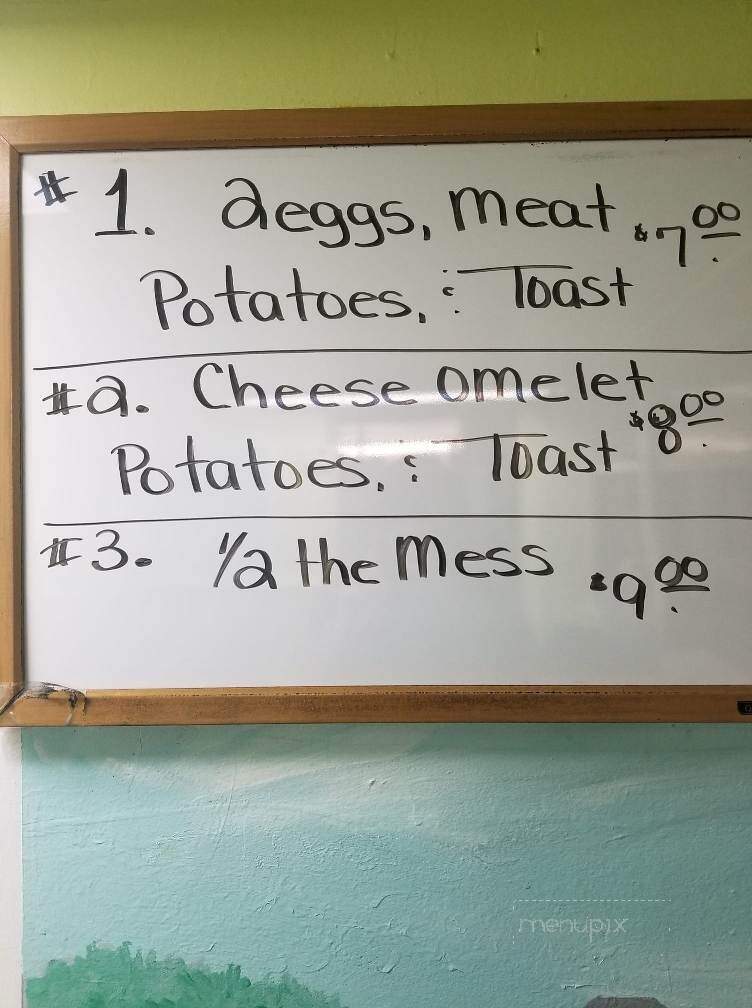 # 1. 2eggs, meat $7.00
Potatoes, & Toast
#2. Cheese omelet $8.00
Potatoes, & Toast
#3. 1/2 the Mess $9.00
menupix